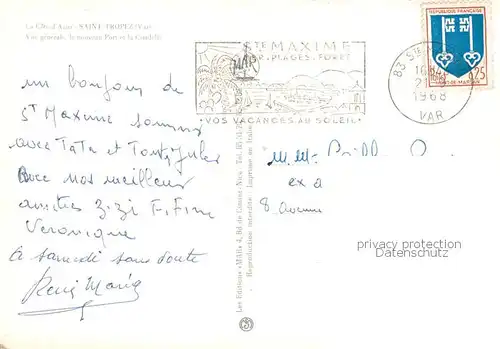 La Côte d'Azur - SAINT-TROPEZ (Var)
Vue générale, le nouveau Port et la Citadelle
un bonjour de
St Maxime sommes
avec Tata et Tonty Jules
Avec nos meilleur
amities Zizi Fifine
Veronique
A samedi sans doute
STE MAXIME
PLAGES. FORET
VOS VACANCES AU SOLEIL
83 S
1968
VAR
REPUBLIQUE FRANÇAISE
0,25
MONT-DE-MARSAN
M. M.
ex a
8 Avenue
Les Editions «MAR» 4, Bd de Cimiez - Nice - Tél.
Reproduction interdite - Imprimé en Italie
privacy protection
Datenschutz